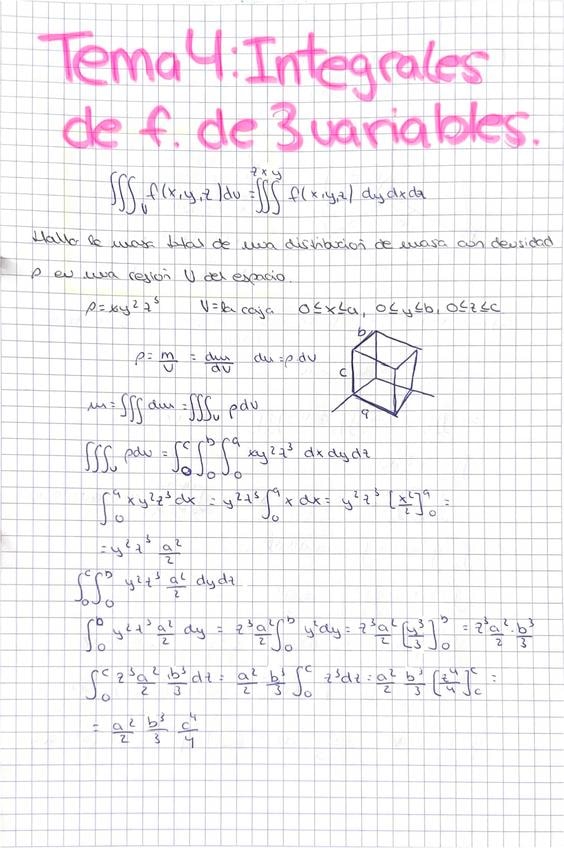 Tema 4: Integrales
de f. de 3 variables.
∭_V f(x,y,z)dv = ∭^{z x y} f(x,y,z) dy dx dz
Halla la masa total de una distribución de masa con densidad
ρ en una región V del espacio.
ρ=xy²z³ V=la caja 0≤x≤a, 0≤y≤b, 0≤z≤c
ρ = m/V = dm/dV dm=ρ·dV
b
c
a
m=∭dm=∭_V ρdV
∭_V ρdv = ∫_0^c ∫_0^b ∫_0^a xy²z³ dx dy dz
∫_0^a xy²z³dx = y²z³ ∫_0^a x dx = y²z³ [x²/2]_0^a =
= y²z³ a²/2
∫_0^c ∫_0^b y²z³ a²/2 dy dz
∫_0^b y²z³ a²/2 dy = z³ a²/2 ∫_0^b y²dy = z³ a²/2 [y³/3]_0^b = z³ a²/2 · b³/3
∫_0^c z³ a²/2 · b³/3 dz = a²/2 b³/3 ∫_0^c z³dz = a²/2 b³/3 [z⁴/4]_c^c =
= a²/2 b³/3 c⁴/4